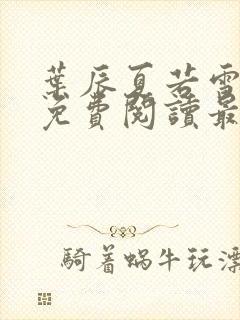 葉辰夏若雪
免費閱讀最
騎着蝸牛玩漂